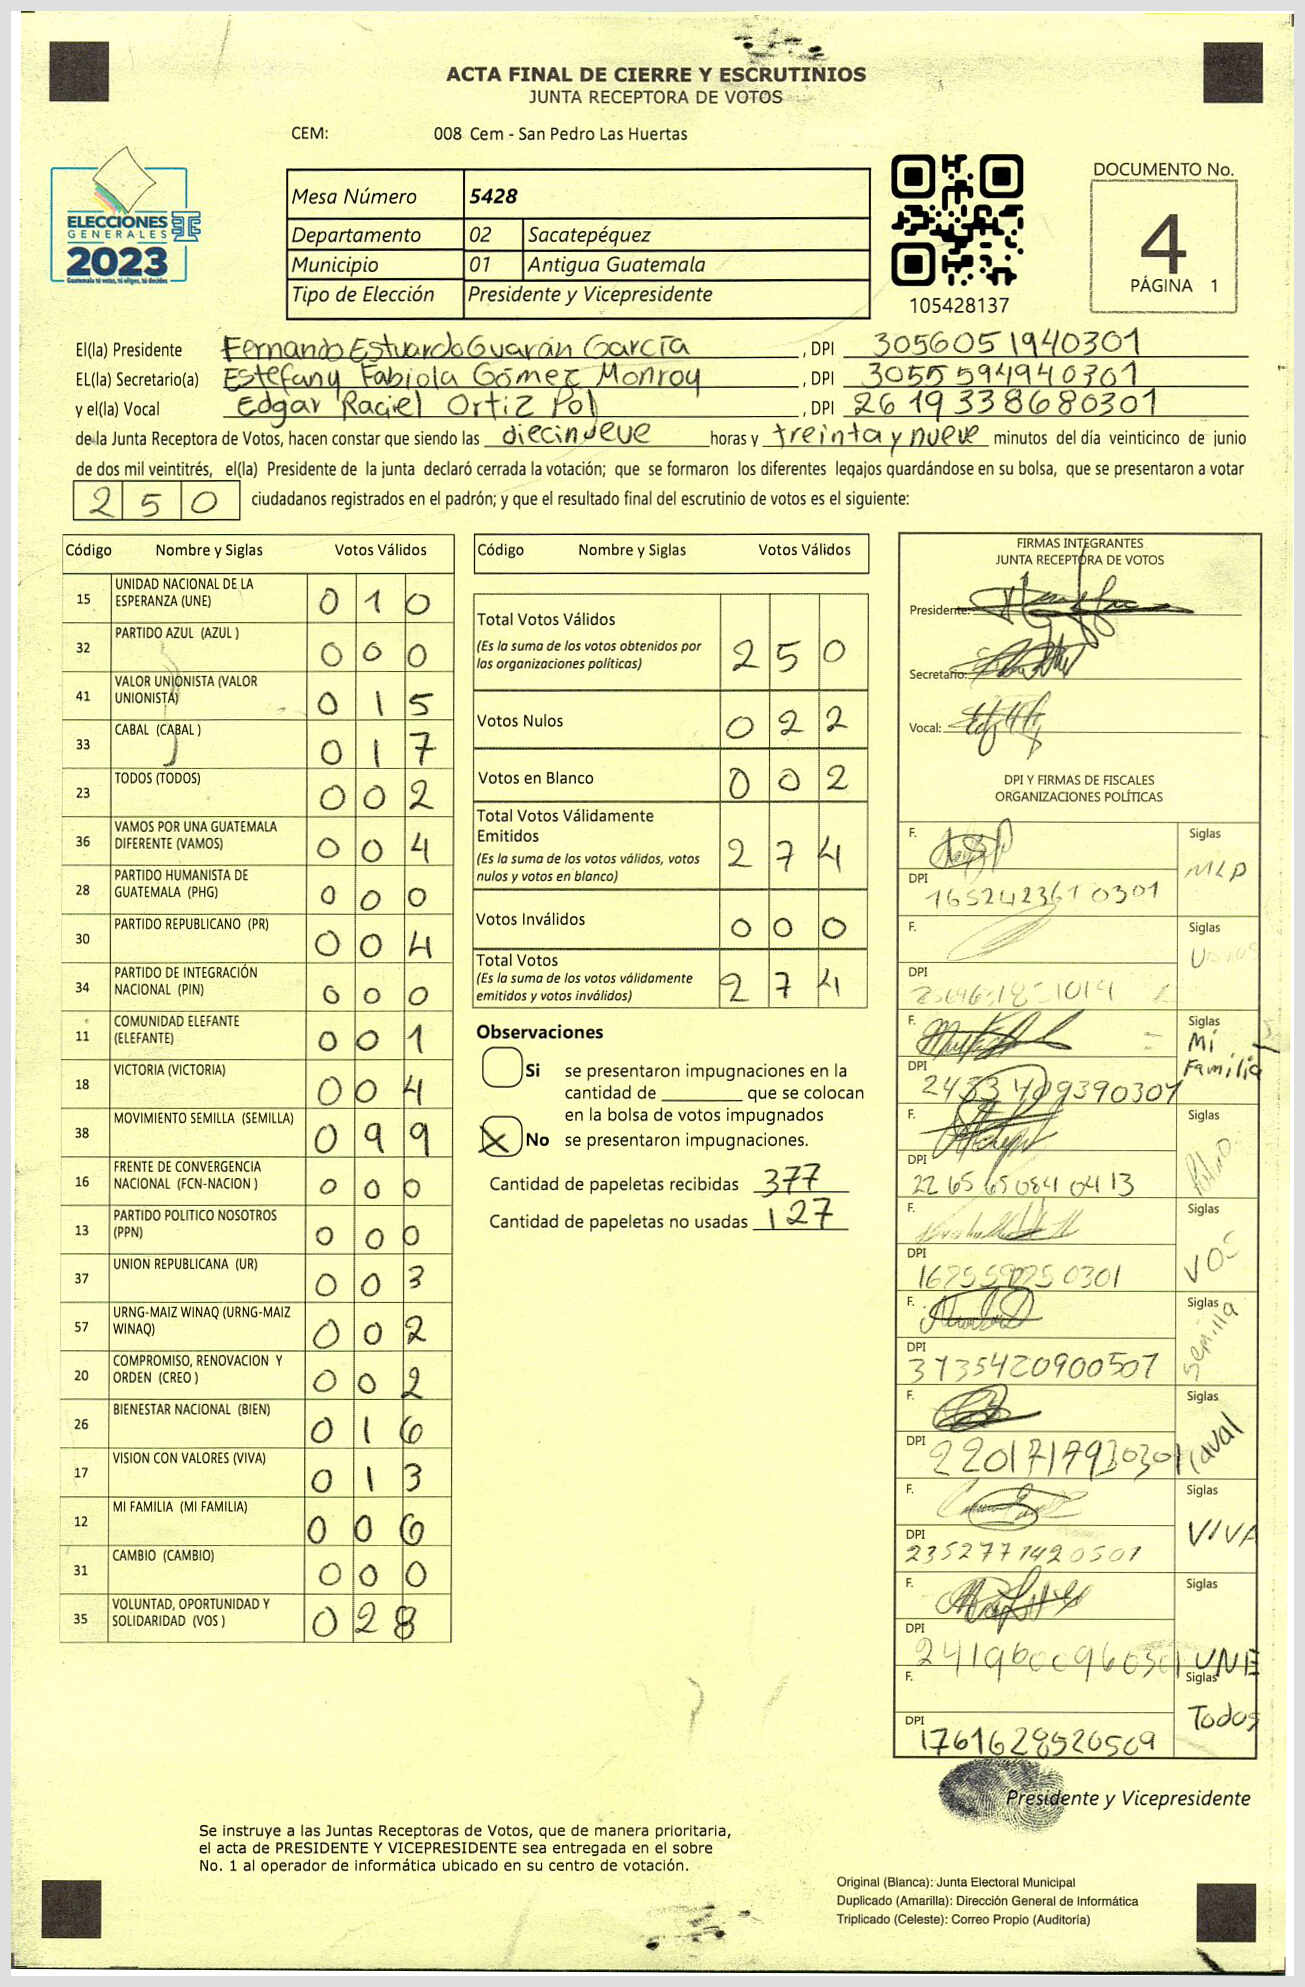 ACTA FINAL DE CIERRE Y ESCRUTINIOS
JUNTA RECEPTORA DE VOTOS
CEM: 008 Cem - San Pedro Las Huertas
ELECCIONES
GENERALES
2023
Guatemala tú votas, tú eliges, tú decides
Mesa Número 5428
Departamento 02 Sacatepéquez
Municipio 01 Antigua Guatemala
Tipo de Elección Presidente y Vicepresidente
105428137
DOCUMENTO No.
4
PÁGINA 1
El(la) Presidente Fernando Estuardo Guarán García , DPI 3056051940301
EL(la) Secretario(a) Estefany Fabiola Gómez Monroy , DPI 3055594940301
y el(la) Vocal Edgar Raciel Ortiz Pol , DPI 2619338680301
de la Junta Receptora de Votos, hacen constar que siendo las diecinueve horas y treinta y nueve minutos del día veinticinco de junio
de dos mil veintitrés, el(la) Presidente de la junta declaró cerrada la votación; que se formaron los diferentes legajos guardándose en su bolsa, que se presentaron a votar
250 ciudadanos registrados en el padrón; y que el resultado final del escrutinio de votos es el siguiente:
Código Nombre y Siglas Votos Válidos
15 UNIDAD NACIONAL DE LA ESPERANZA (UNE) 010
32 PARTIDO AZUL (AZUL ) 000
41 VALOR UNIONISTA (VALOR UNIONISTA) 015
33 CABAL (CABAL ) 017
23 TODOS (TODOS) 002
36 VAMOS POR UNA GUATEMALA DIFERENTE (VAMOS) 004
28 PARTIDO HUMANISTA DE GUATEMALA (PHG) 000
30 PARTIDO REPUBLICANO (PR) 004
34 PARTIDO DE INTEGRACIÓN NACIONAL (PIN) 000
11 COMUNIDAD ELEFANTE (ELEFANTE) 001
18 VICTORIA (VICTORIA) 004
38 MOVIMIENTO SEMILLA (SEMILLA) 099
16 FRENTE DE CONVERGENCIA NACIONAL (FCN-NACION ) 000
13 PARTIDO POLITICO NOSOTROS (PPN) 000
37 UNION REPUBLICANA (UR) 003
57 URNG-MAIZ WINAQ (URNG-MAIZ WINAQ) 002
20 COMPROMISO, RENOVACION Y ORDEN (CREO ) 002
26 BIENESTAR NACIONAL (BIEN) 016
17 VISION CON VALORES (VIVA) 013
12 MI FAMILIA (MI FAMILIA) 006
31 CAMBIO (CAMBIO) 000
35 VOLUNTAD, OPORTUNIDAD Y SOLIDARIDAD (VOS ) 028
Código Nombre y Siglas Votos Válidos
Total Votos Válidos 250
(Es la suma de los votos obtenidos por
las organizaciones políticas)
Votos Nulos 022
Votos en Blanco 002
Total Votos Válidamente
Emitidos 274
(Es la suma de los votos válidos, votos
nulos y votos en blanco)
Votos Inválidos 000
Total Votos 274
(Es la suma de los votos válidamente
emitidos y votos inválidos)
Observaciones
Si se presentaron impugnaciones en la
cantidad de ________ que se colocan
en la bolsa de votos impugnados
X No se presentaron impugnaciones.
Cantidad de papeletas recibidas 377
Cantidad de papeletas no usadas 127
FIRMAS INTEGRANTES
JUNTA RECEPTORA DE VOTOS
Presidente:
Secretario:
Vocal:
DPI Y FIRMAS DE FISCALES
ORGANIZACIONES POLÍTICAS
F. Siglas MLP
DPI 1652423610301
F. Siglas
DPI
F. Siglas Mi Familia
DPI
F. Siglas
DPI 2265650840413
F. Siglas VOS
DPI
F. Siglas Semilla
DPI 3735420900507
F. Siglas
DPI 2201717930301
F. Siglas VIVA
DPI 2352771420501
F. Siglas UNE
DPI 2419600960301
F. Siglas Todos
DPI 1761628520509
Presidente y Vicepresidente
Se instruye a las Juntas Receptoras de Votos, que de manera prioritaria,
el acta de PRESIDENTE Y VICEPRESIDENTE sea entregada en el sobre
No. 1 al operador de informática ubicado en su centro de votación.
Original (Blanca): Junta Electoral Municipal
Duplicado (Amarilla): Dirección General de Informática
Triplicado (Celeste): Correo Propio (Auditoría)